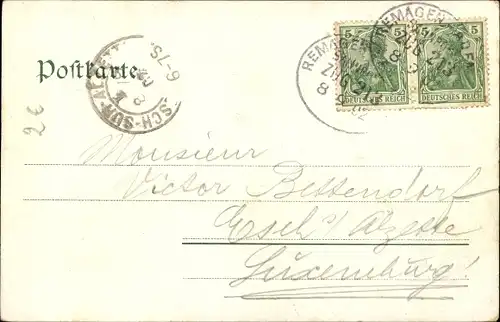 5 5
DEUTSCHES REICH DEUTSCHES REICH
REMAGEN REMAGEN
ZUG ZUG
Postkarte
ESCH-SUR-ALZETTE
6-7S
2€
Monsieur
Victor Bettendorf
Esch s/ Alzette
Luxemburg!